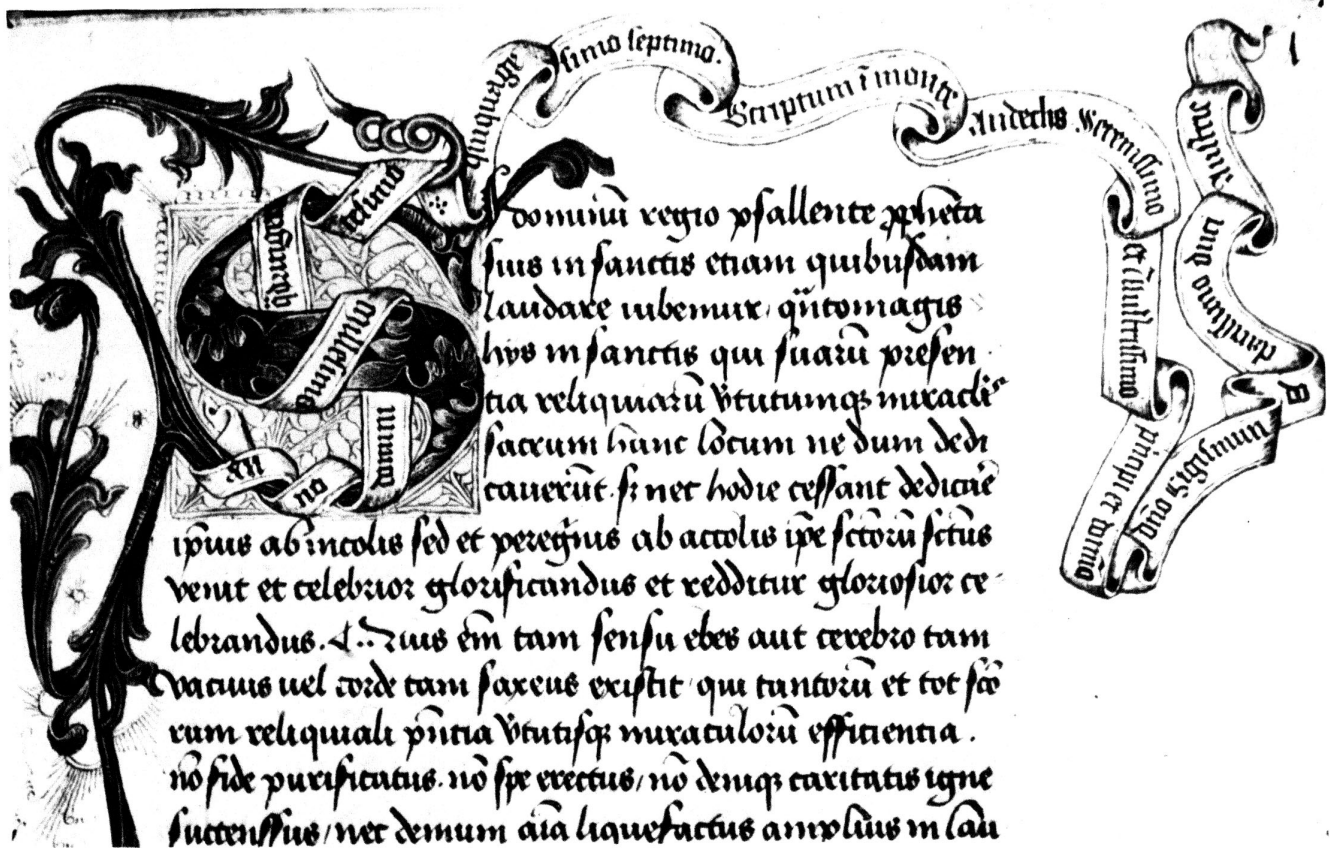 An
no
domini
millesimo
quadringen
tesimo
quinquage
simo septimo.
Scriptum ī monte
Andechs Serenissimo
et illustrissimo
principi et domīo
dn̄o Sigismun
do
S dominū regio psallente ꝓphēta
suis in sanctis etiam quibusdam
laudare iubemur, qn̄tomagis
hys in sanctis qui suarū presen
tia reliquiarū v̄tutumqꝫ miraclis
sacrum hūnc locum ne dum dedi
caverūt. sꝫ nec hodie cessant dedicāē
ip̄ius ab incolis sed et peregīnis ab accolis ip̄e sc̄torū sc̄tus
venit et celebrior glorificandus et redditur gloriosior ce-
lebrandus. Quis em̄ tam sensu ebes aut cerebro tam
vacuus uel corde tam saxeus existit qui tantorū et tot sc̄o
rum reliquiali pn̄tia v̄tutisqꝫ miraculorū efficientia.
nō fide purificatus. nō spe erectus, nō deniqꝫ caritatis igne
succenssus, nec demum aīa liquefactus amplius in lau